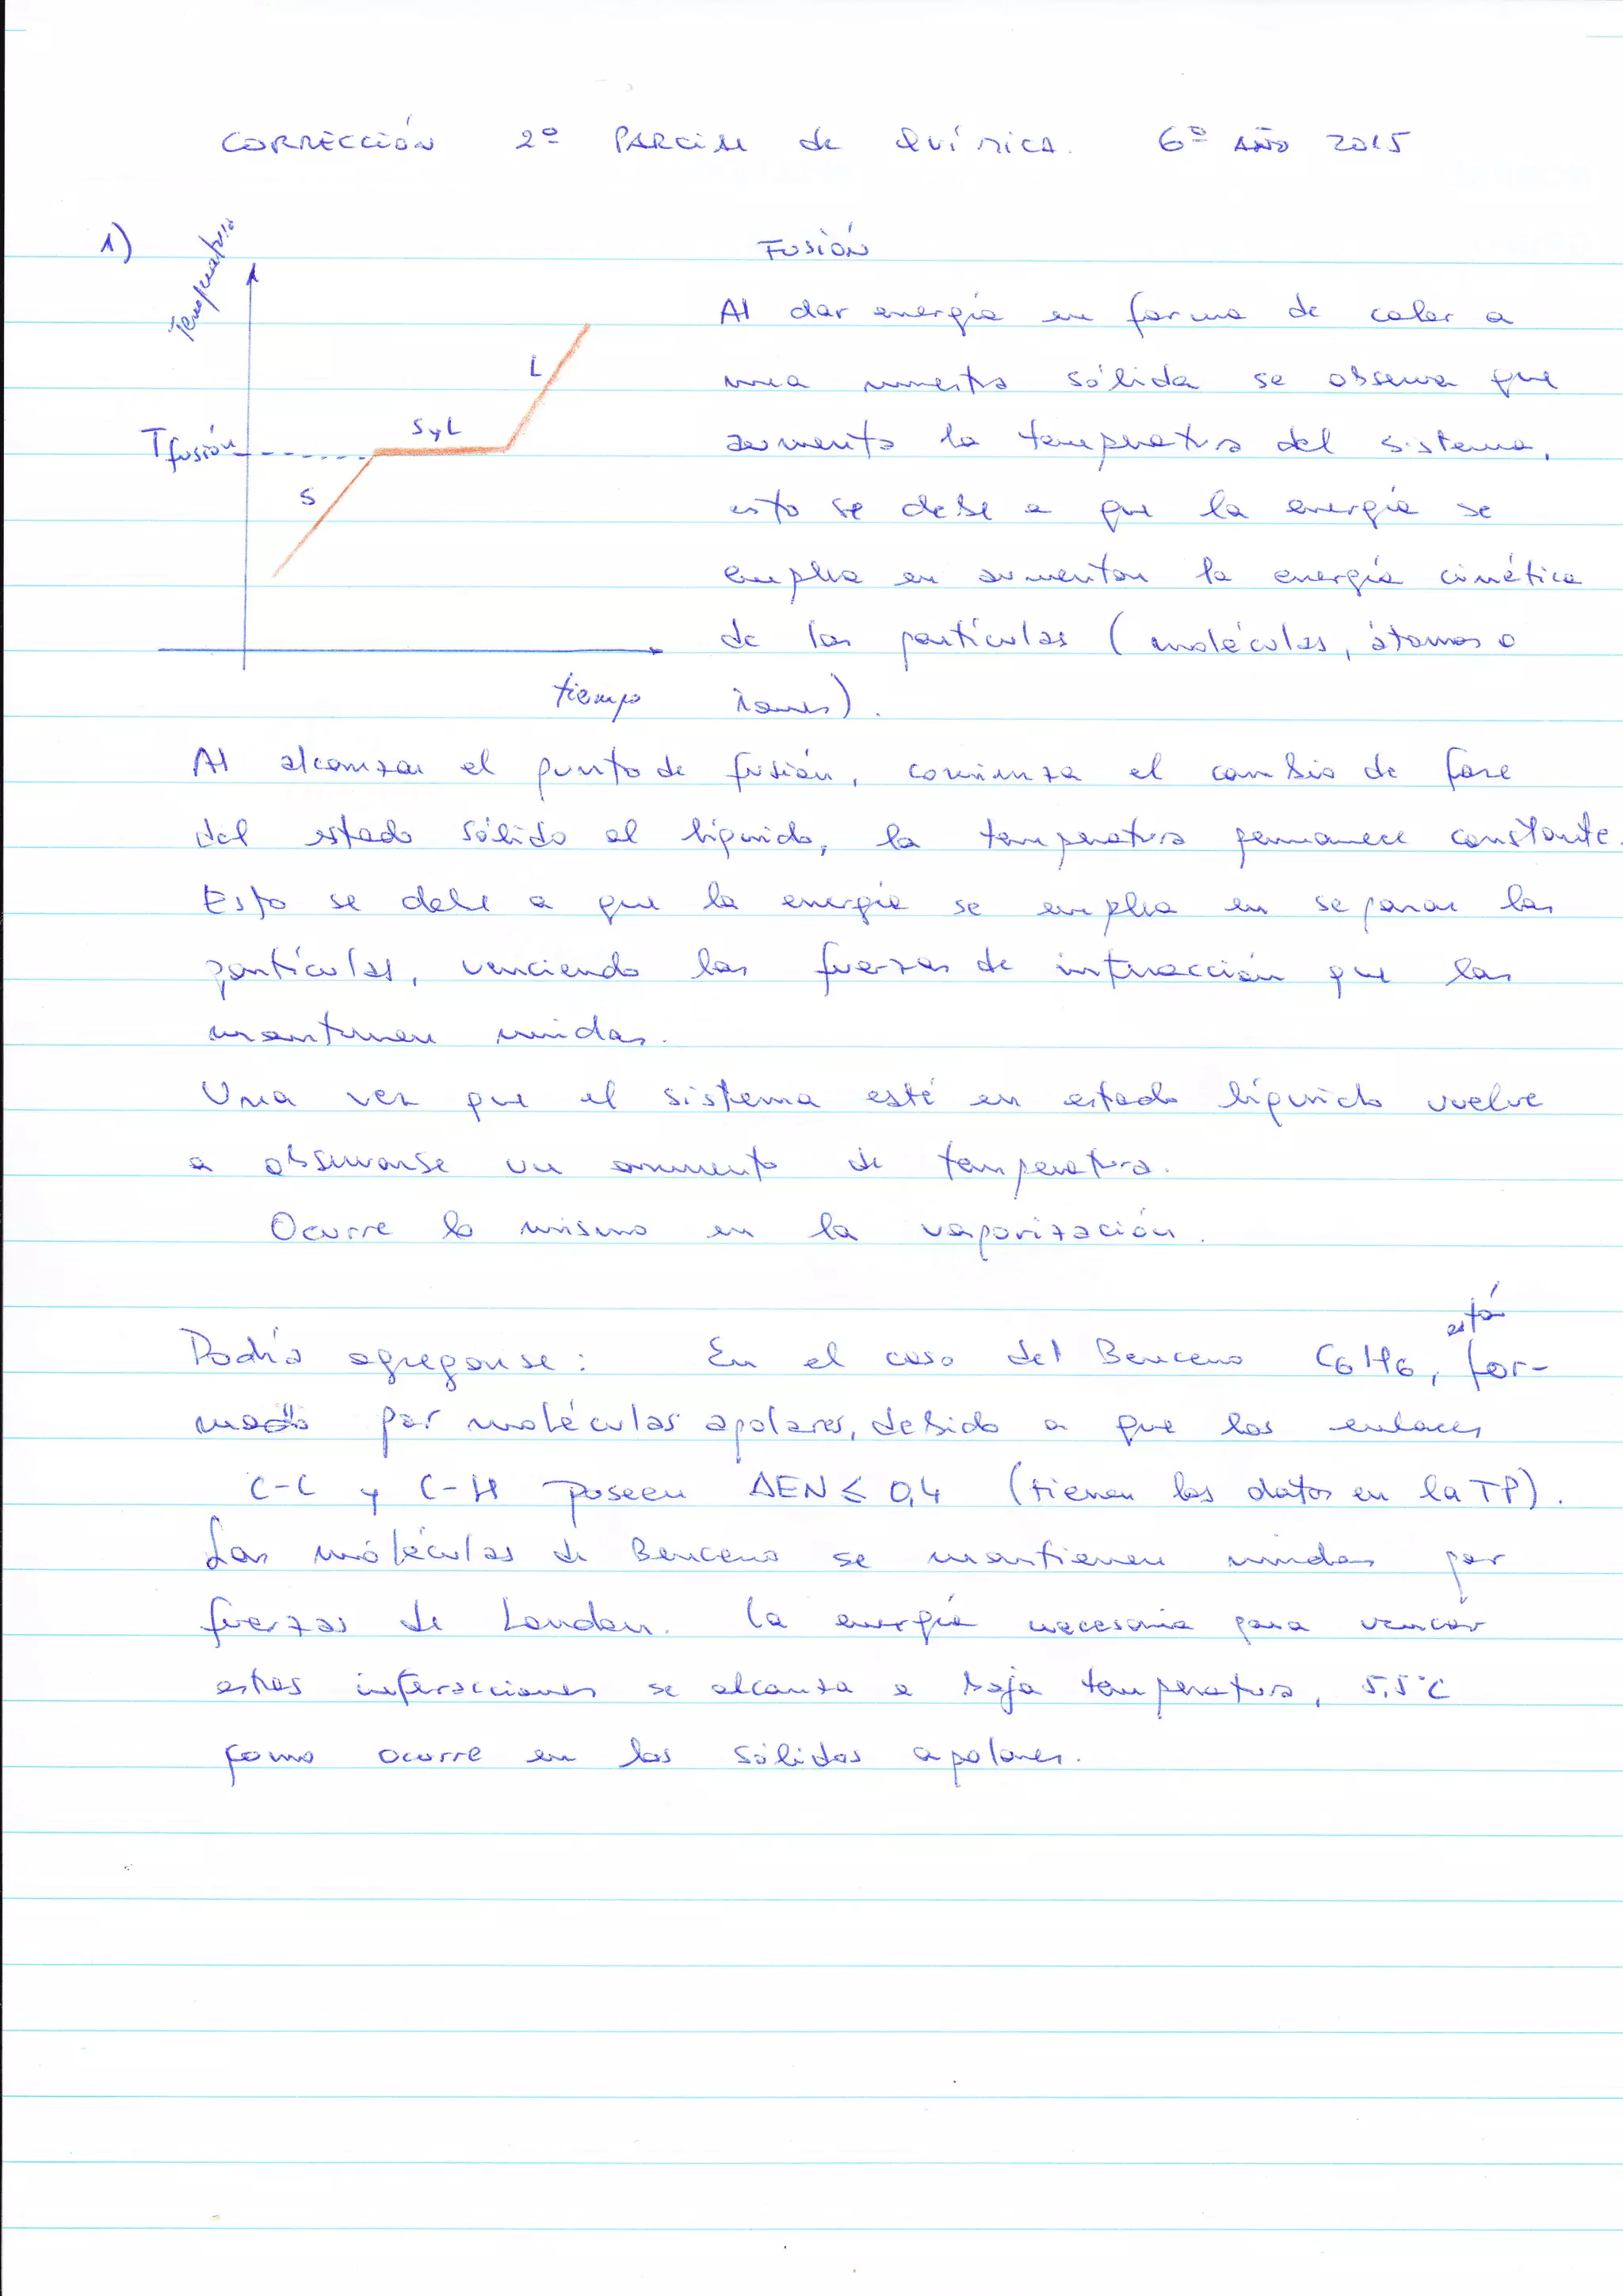 CORRECCIÓN 2º PARCIAL de QUÍMICA. 6º AÑO 2015
1)
Temperatura
Fusión
Al dar energía en forma de calor a
L
una muestra sólida se observa que
S y L
T fusión
aumenta la temperatura del sistema,
S
esto se debe a que la energía se
emplea en aumentar la energía cinética
de las partículas (moléculas, átomos o
tiempo
iones).
Al alcanzar el punto de fusión, comienza el cambio de fase
del estado sólido al líquido, la temperatura permanece constante.
Esto se debe a que la energía se emplea en separar las
partículas, venciendo las fuerzas de interacción que las
mantienen unidas.
Una vez que el sistema esté en estado líquido vuelve
a observarse un aumento de temperatura.
Ocurre lo mismo en la vaporización.
está
Podría agregarse: En el caso del Benceno C6H6, for-
mado por moléculas apolares, debido a que los enlaces
C-C y C-H poseen ΔEN ≤ 0,4 (tienen los datos en la TP).
Las moléculas de Benceno se mantienen unidas por
fuerzas de London. La energía necesaria para vencer
estas interacciones se alcanza a baja temperatura, 5,5°C
como ocurre en los sólidos apolares.